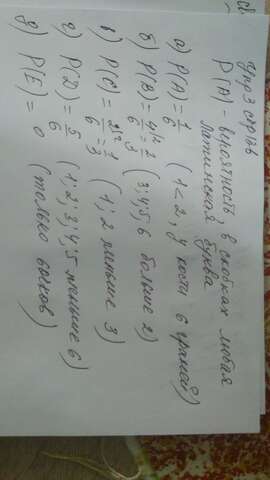 Упр 3 стр 86
P(A) - вероятность, в скобках любая
латинская буква
а) P(A) = 1/6 (1 < 2, у кости 6 граней)
б) P(B) = 4/6 = 2/3 (3; 4; 5; 6 больше 2)
в) P(C) = 2/6 = 1/3 (1; 2 меньше 3)
г) P(D) = 5/6 (1; 2; 3; 4; 5 меньше 6)
д) P(E) = 0 (только очков)